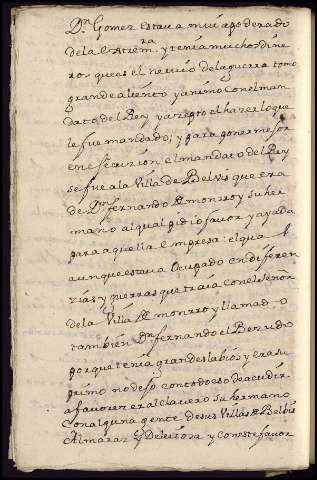 Dn Gomez estava mui apoderado
de la Estrem.ra y tenia mucho dine
ro, que es el nervio de la guerra tomo
grande aliento y animo con el man
dato del Rey y açepto el hazer lo que
le fue mandado; y para poner mejor
en esecucion el mandato del Rey
se fue a la Villa de Belvis que era
de Dn fernando de monrroy su her
mano al qual pidio favor y ayuda
para aquella empresa: el qual
aunque estava ocupado en diferen
zias y guerras que traia con el señor
de la Villa de monrroy llamado
tambien Dn fernando el Bezudo
porque tenia grandes labios y era su
primo no dejo con todo eso de acudir
a favorezer al Clavero su hermano
con alguna gente de sus Villas de Belbis
Almaraz y Deleitosa y con este favor